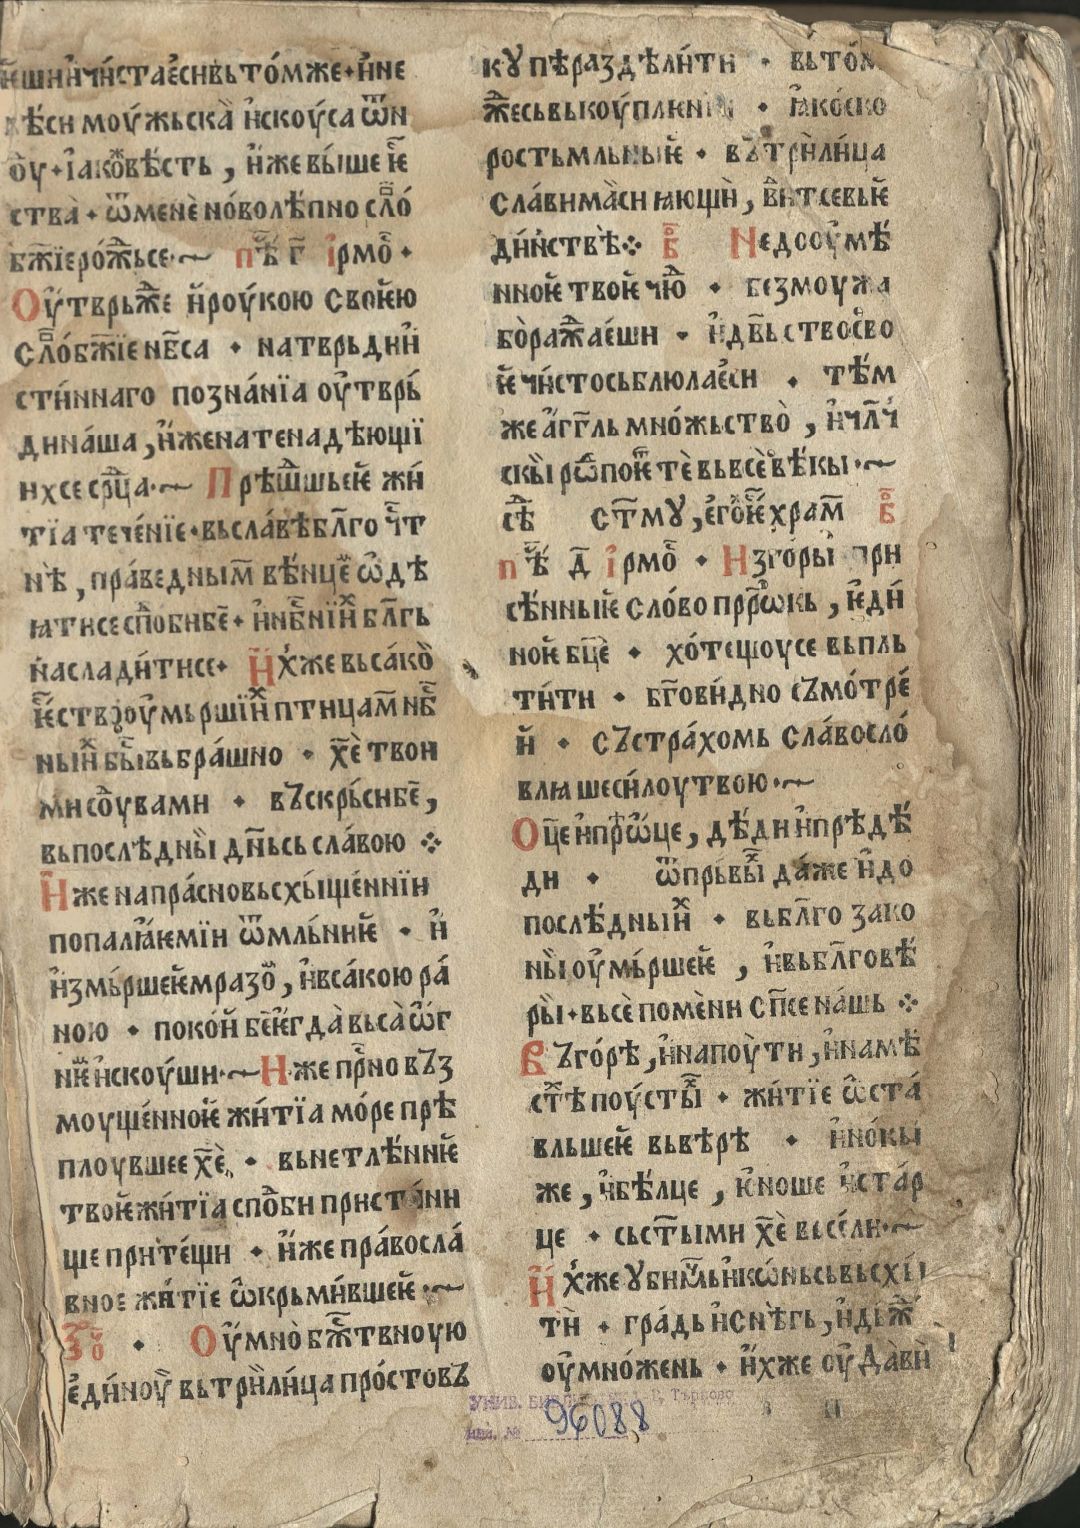 к҃шиѝ чи́стаѐси вь то́мже · и҆не
вѣ́си моу́жьска̀ и҆скоу́са ѿ и҆н
ѹ · ꙗ҆ко вѣ́сть , и҆́же вы́ше ѥс
ства̀ · ѿ менѐ но́волѣ́пно сло́
бж҃їе рожⷣьсе ·~ пѣⷭ҇ г҃ і҆рмоⷭ҇ ·
Оу҆тврьжⷣе и҆ роу́кою своѥ́ю
сло́ бж҃їе нб҃са · на тврьди и҆́
сти́ннаго позна́нїа оу҆тврь́
ди на́ша , и҆́же на те надѣ́ющї
ихсе срⷣца ·~ Прѣшⷣьшеѥ жи́
тїа тече́нїе · вь сла́вѣ бл҃го чⷭ҇т
нѣ̀ , пра́ведным вѣ́нце ѡ҆дѣ
ꙗтисе спо́би бе҃ · и҆ нбⷭ҇нїиⷯ бл҃гь
насладитисе · И҆́хже вьса́ко̀
ѥⷭ҇ство оу҆мьршїиⷯ птицам нбⷭ҇
ныиⷯ бы́ вь бра́шно · хе҃ твои
ми сꙋ́вами · въскрьси бе҃ ,
вь послѣ́дны̀и дн҃ьсь сла́вою ⁘
И҆́же напра́сно вьсхы́ще́ннїи
попалꙗ́ѥмїи ѿ мль́ниѥ · и҆
и҆змь́ршеѥ мразоⷨ , и҆ вса́кою ра́
ною · поко́й бе҃ ѥ҆гда̀ вьса̀ ѡ҆́г
ниⷨ и҆скоу́ши ·~ И҆́же прⷭ҇но въз
моуще́нноѥ жи́тїа мо́ре прѣ
плоувшее хе҃ · вь нетлѣ́нниѥ
твоѥ жи́тїа спо́би приста́ни
ще прите́щи · и҆́же пра́восла́
вное жи́тїе ѡ҆крьми́вшеѥ ·~
Бо҃ · Оу҆мно̀ бжⷭ҇твноую
є҆ди́ноу вь три̏ли́ца про́стовъ
кꙋпѣ раздѣли́ти · вь то́м
же сь выкоу́плѥни · ꙗ҆ко ско
рость мльныѥ · въ три̏ли́ца
сла́вима̀ сиꙗющи̏ , вь тсевыѥ
ди́нствѣ ⁘ бⷪ҇ Недооу҆мѣ́
нноѥ твоѥ чюⷣ · без моу́жа
бо̀ ражⷣае́ши · и҆ дв҃ьство сво
ѥ чи́сто сьблюлаѐси · тѣ́м
же а҆́гг҃ль мно́жьство̀ , и҆ чл҃чⷭ҇
скы̀ роⷣ поѥⷮ тѐ вь всѐ вѣ́кы ·~
сѣⷣ ст҃мꙋ , є҆гоⷤ ѥⷭ҇ храм бⷪ҇
пѣⷭ҇ д҃ і҆рмоⷭ҇ · Из горы̀ при
сѣ́нныѥ сло́во прⷪ҇рѡкь , ѥ҆ди́
ноѥ бц҃ѐ · хо́тещоусе вьпль
ти́ти · бг҃ови́дно съмо́тре́
й · съ стра́хомь сла́восло́
влꙗше си́лоу твою ·~
Оц҃е и҆ прⷪ҇ѡц҃е , дѣ́ди и҆ прѣдѣ́
ди · ѿ прьвы́иⷯ да́же и҆ до
послѣ́дныиⷯ · вь бл҃го зако
ны̀и оу҆мь́ршеѥ , и҆ вь бл҃говѣ́
ры̀ · вьсѐ помѐни сп҃се на́шь ⁘
Въ го́рѣ , и҆ на поу̀ти , и҆ на мѣ́
стѣ поу́стыⷯ · жи́тїе ѡ҆ста́
вльшеѥ вь вѣрѣ · и҆но́кы
же , и҆ бѣ́лце , ю҆ноше и҆ ста́р
це · сь ст҃ыми хе҃ всели ·~
И҆́хже ꙋби мльни ко́нь сь вьсхы́
тѝ · гра́дь и҆ снѣ́гь , и҆ дьжⷣ
оу҆мно́жень · и҆́хже оу҆дави
УНИВ. БИБЛ. В. Търново
инв. № 96088